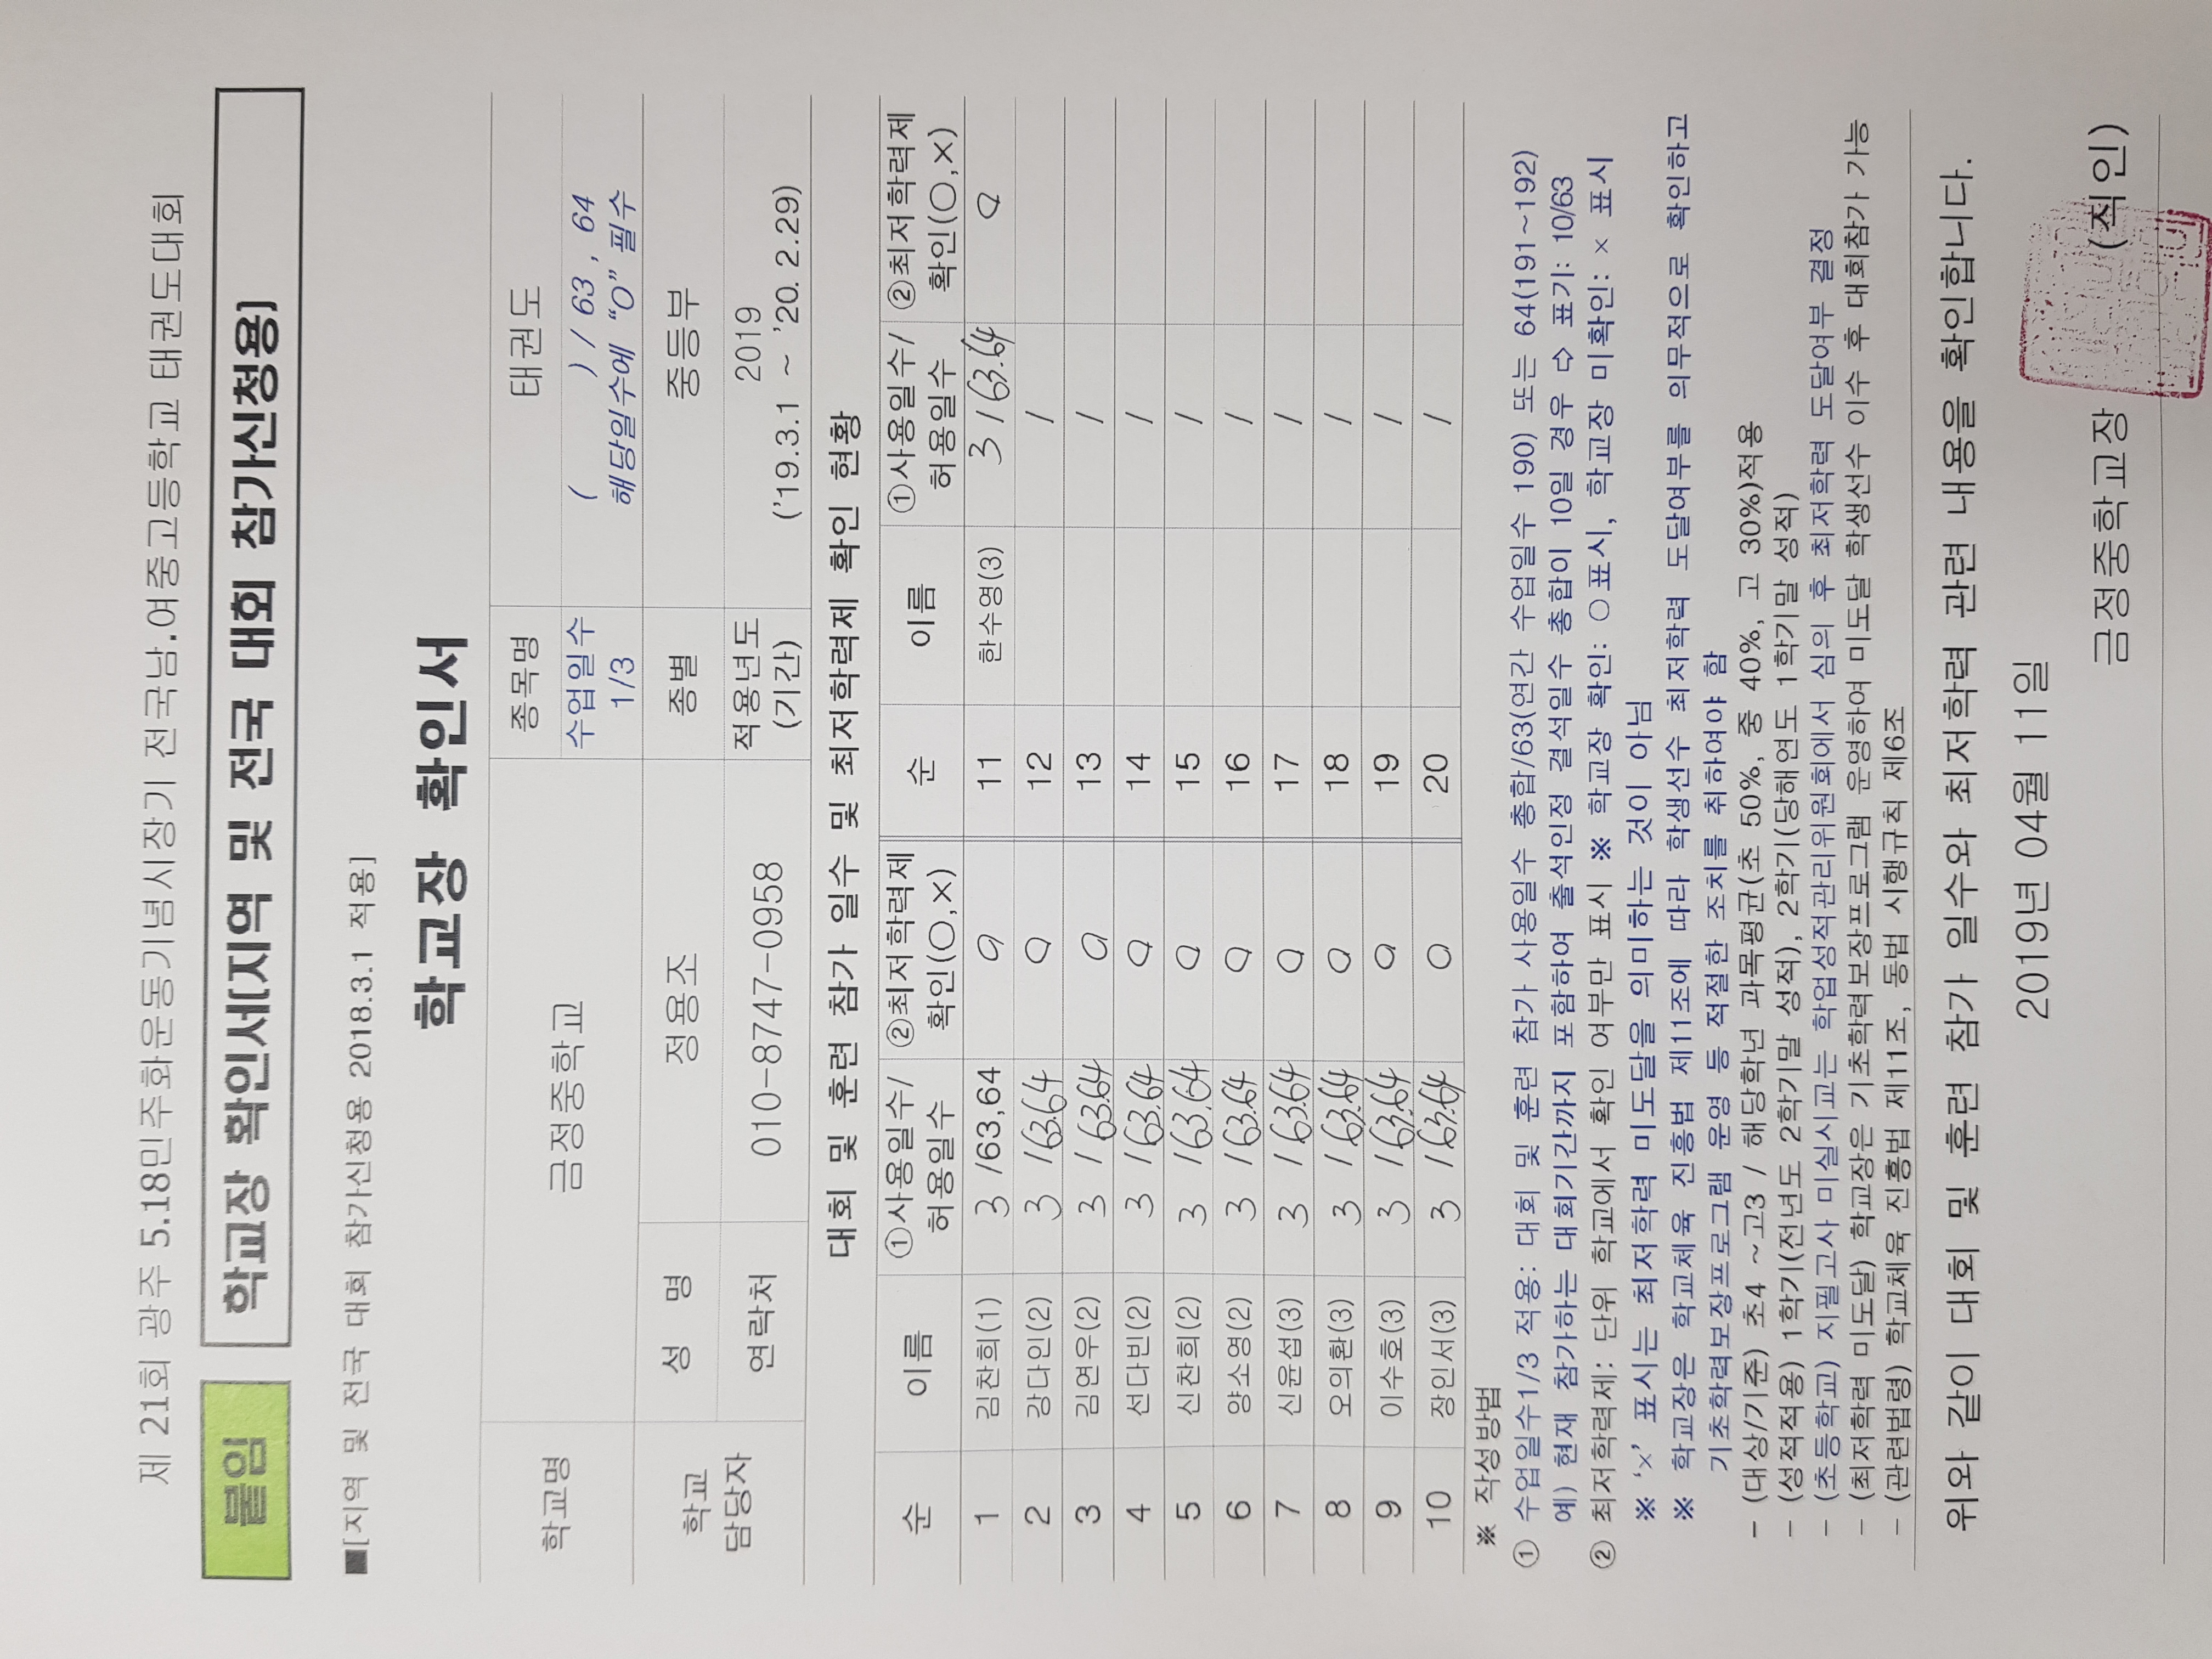 제 21회 광주 5.18민주화운동기념시장기 전국남.여중고등학교 태권도대회
붙임 학교장 확인서(지역 및 전국 대회 참가신청용)
■[지역 및 전국 대회 참가신청용 2018.3.1 적용]
학교장 확인서
학교명 금정중학교 종목명 태권도
수업일수 1/3 ( ) / 63 , 64
해당일수에 “O” 필수
학교 담당자 성 명 정용조 종별 중등부
연락처 010-8747-0958 적용년도 (기간) 2019
('19.3.1 ~ '20. 2.29)
대회 및 훈련 참가 일수 및 최저학력제 확인 현황
순 이름 ①사용일수/허용일수 ②최저학력제 확인(○,×) 순 이름 ①사용일수/허용일수 ②최저학력제 확인(○,×)
1 김찬희(1) 3 /63,64 O 11 한수영(3) 3 / 63.64 O
2 강다인(2) 3 / 63.64 O 12 /
3 김연우(2) 3 / 63.64 O 13 /
4 선다빈(2) 3 / 63.64 O 14 /
5 신찬희(2) 3 / 63.64 O 15 /
6 양소영(2) 3 / 63.64 O 16 /
7 신윤섭(3) 3 / 63.64 O 17 /
8 오의환(3) 3 / 63.64 O 18 /
9 이수호(3) 3 / 63.64 O 19 /
10 장인서(3) 3 / 63.64 O 20 /
※ 작성방법
① 수업일수1/3 적용: 대회 및 훈련 참가 사용일수 총합/63(연간 수업일수 190) 또는 64(191~192)
예) 현재 참가하는 대회기간까지 포함하여 출석인정 결석일수 총합이 10일 경우 ⇨ 표기: 10/63
② 최저학력제: 단위 학교에서 확인 여부만 표시 ※ 학교장 확인: ○표시, 학교장 미확인: × 표시
※ ‘×’ 표시는 최저학력 미도달을 의미하는 것이 아님
※ 학교장은 학교체육 진흥법 제11조에 따라 학생선수 최저학력 도달여부를 의무적으로 확인하고
기초학력보장프로그램 운영 등 적절한 조치를 취하여야 함
- (대상/기준) 초4 ~고3 / 해당학년 과목평균(초 50%, 중 40%, 고 30%)적용
- (성적적용) 1학기(전년도 2학기말 성적), 2학기(당해연도 1학기말 성적)
- (초등학교) 지필고사 미실시교는 학업성적관리위원회에서 심의 후 최저학력 도달여부 결정
- (최저학력 미도달) 학교장은 기초학력보장프로그램 운영하여 미도달 학생선수 이수 후 대회참가 가능
- (관련법령) 학교체육 진흥법 제11조, 동법 시행규칙 제6조
위와 같이 대회 및 훈련 참가 일수와 최저학력 관련 내용을 확인합니다.
2019년 04월 11일
금정중학교장 (직인)